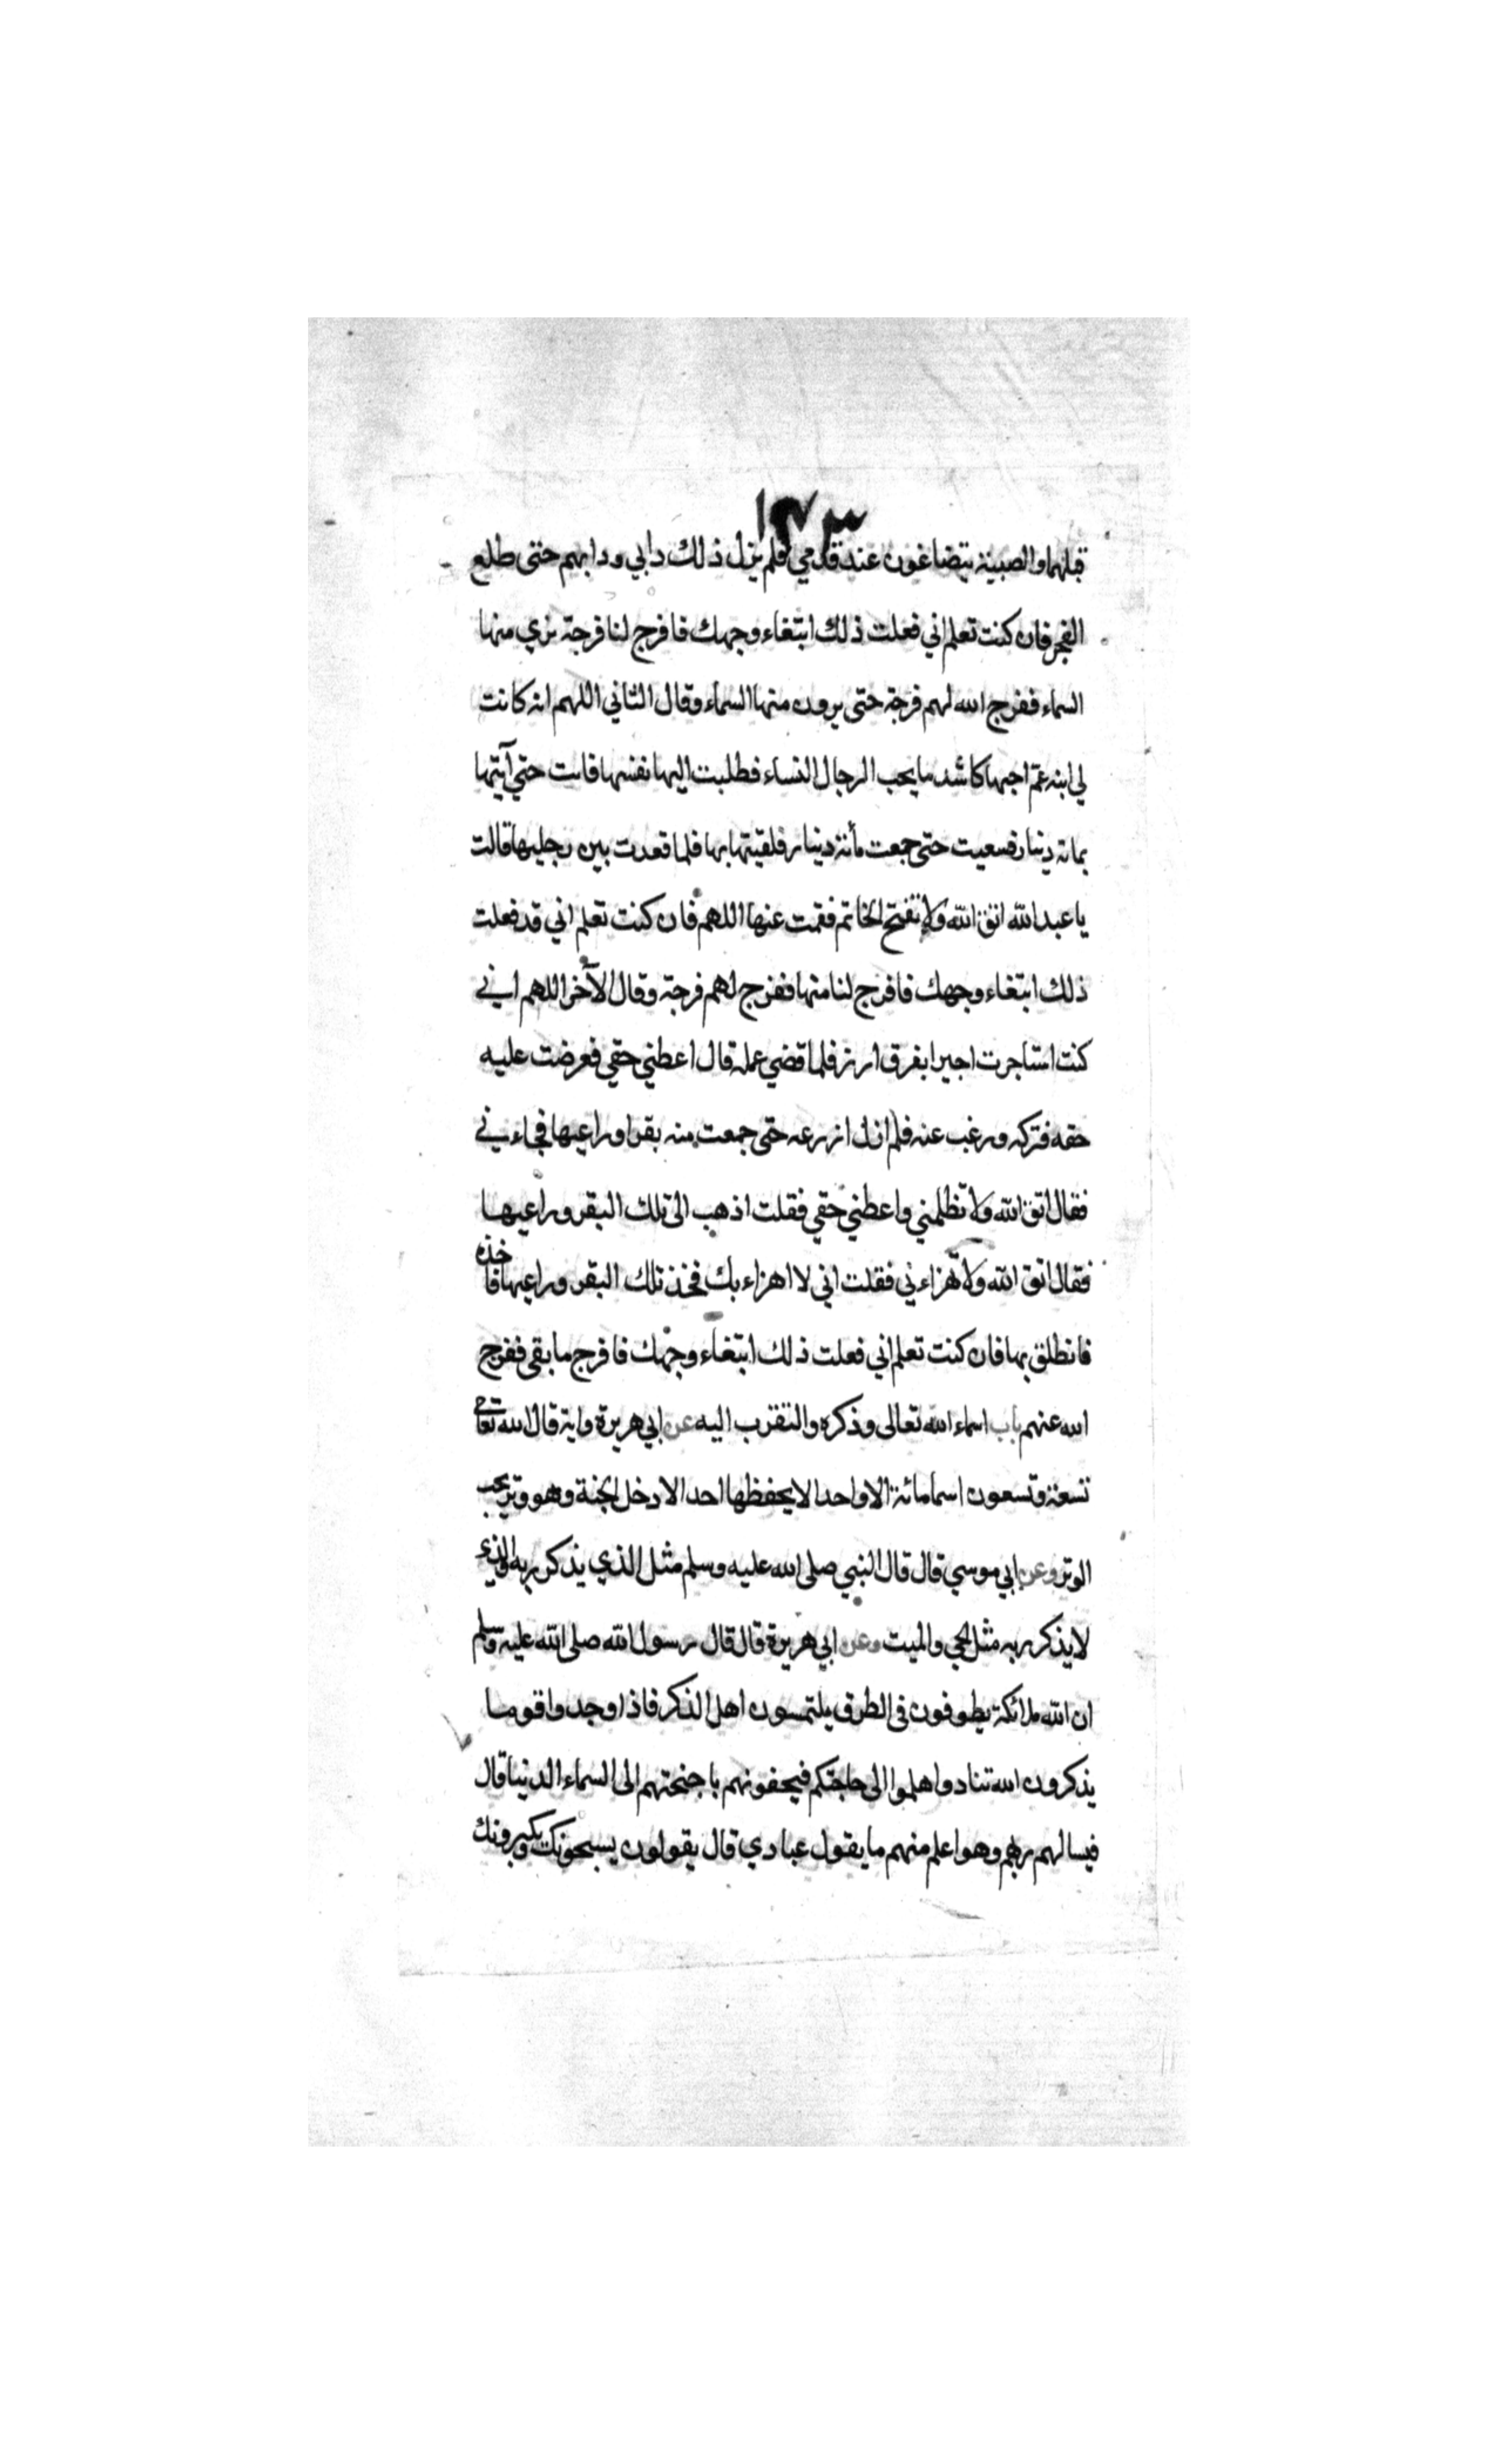 ١٢٧٣
قبلهما والصبية يتضاغون عند قدمي فلم يزل ذلك دابي ودابهم حتى طلع
الفجر فان كنت تعلم اني فعلت ذلك ابتغاء وجهك فافرج لنا فرجة نري منها
السماء ففرج الله لهم فرجة حتى يرون منها السماء وقال الثاني اللهم انه كانت
لي ابنة عم احبها كاشد ما يحب الرجال النساء فطلبت اليها نفسها فابت حتي آتيتها
بماتة دينار فسعيت حتى جمعت مأتة دينار فلقيتها بها فلما قعدت بين رجليها قالت
يا عبد الله اتق الله ولا تفتح الخاتم فقمت عنها اللهم فان كنت تعلم اني قد فعلت
ذلك ابتغاء وجهك فافرج لنا منها ففرج لهم فرجة وقال الآخر اللهم اني
كنت استاجرت اجيرا بفرق ارز فلما قضي عمله قال اعطني حقي فعرضت عليه
حقه فتركه ورغب عنه فلم ازل ازرعه حتى جمعت منه بقرا وراعيها فجاءني
فقال اتق الله ولا تظلمني واعطني حقي فقلت اذهب الى تلك البقر وراعيها
فقال اتق الله ولا تهزاء بي فقلت اني لا اهزاء بك فخذ تلك البقر وراعيها فاخذه
فانطلق بها فان كنت تعلم اني فعلت ذلك ابتغاء وجهك فافرج ما بقى ففرج
الله عنهم باب اسماء الله تعالى وذكره والتقرب اليه عن ابي هريرة واية قال لله تعالى
تسعة وتسعون اسما مائة الا واحد الا يحفظها احد الا دخل الجنة وهو وتر يحب
الوتر وعن ابي موسي قال قال النبي صلى الله عليه وسلم مثل الذي يذكر ربه والذي
لا يذكر ربه مثل الحي والميت وعن ابي هريرة قال قال رسول الله صلى الله عليه وسلم
ان الله ملائكة يطوفون في الطرق يلتمسون اهل الذكر فاذا وجدوا قوما
يذكرون الله تنادوا هلموا الى حاجتكم فيحفونهم باجنحتهم الى السماء الدنيا قال
فيسالهم ربهم وهو اعلم منهم ما يقول عبادي قال يقولون يسبحونك ويكبرونك